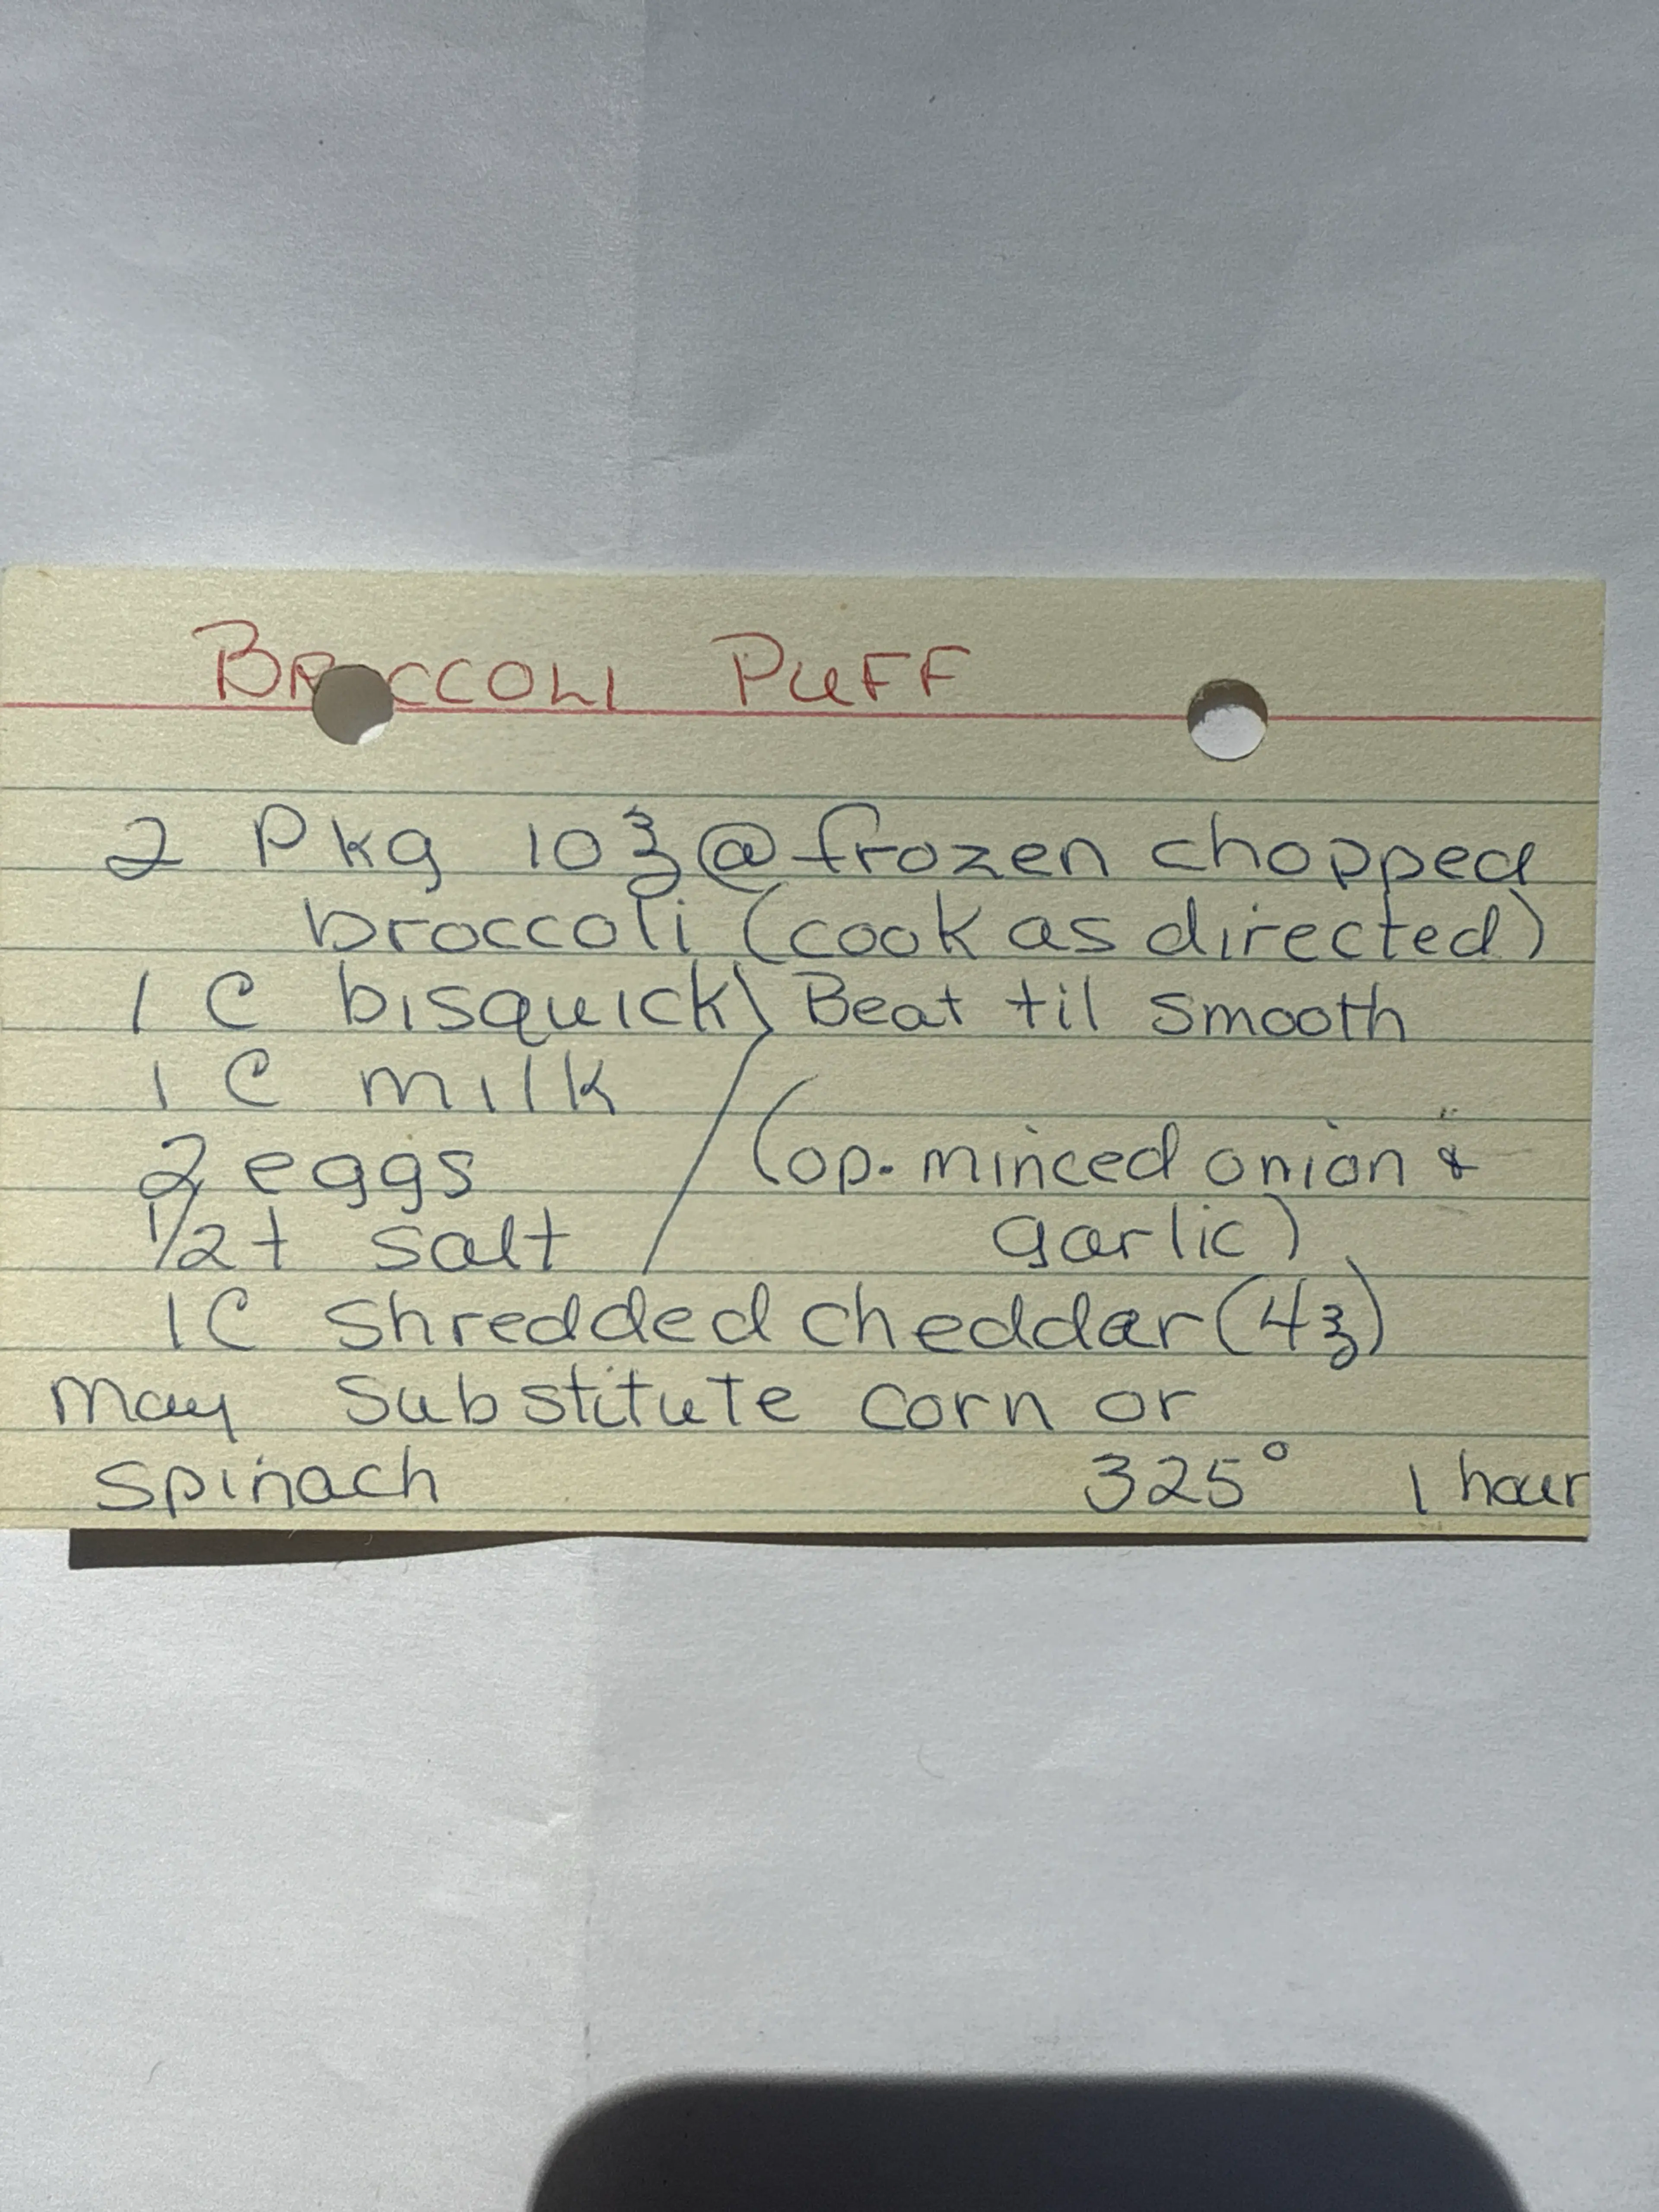 BROCCOLI PUFF
2 Pkg 10 ℥ @ frozen chopped
broccoli (cook as directed)
1 C bisquick } Beat til smooth
1 C milk
2 eggs (op. minced onion &
1/2 t salt garlic)
1 C shredded cheddar (4 ℥)
May substitute corn or
spinach 325° 1 hour